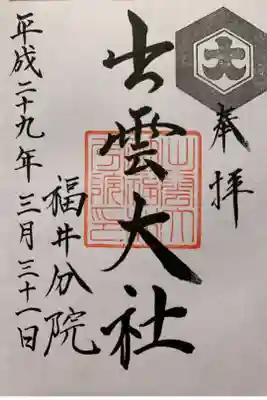 奉拝
大
出雲大社
福井分院
平成二十九年三月三十一日